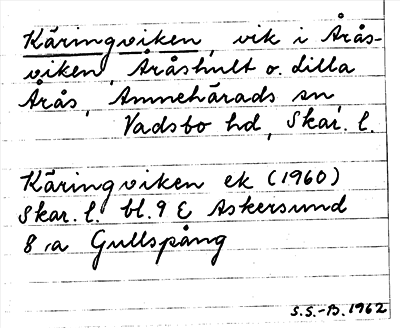 Käringviken, vik i Årås-
viken, Åråshult o. Lilla
Årås, Amnehärads sn,
Vadsbo hd, Skar. l.
Käringviken ek (1960)
Skar. l. bl. 9 E Askersund
8 a Gullspång
S.S.-B. 1962